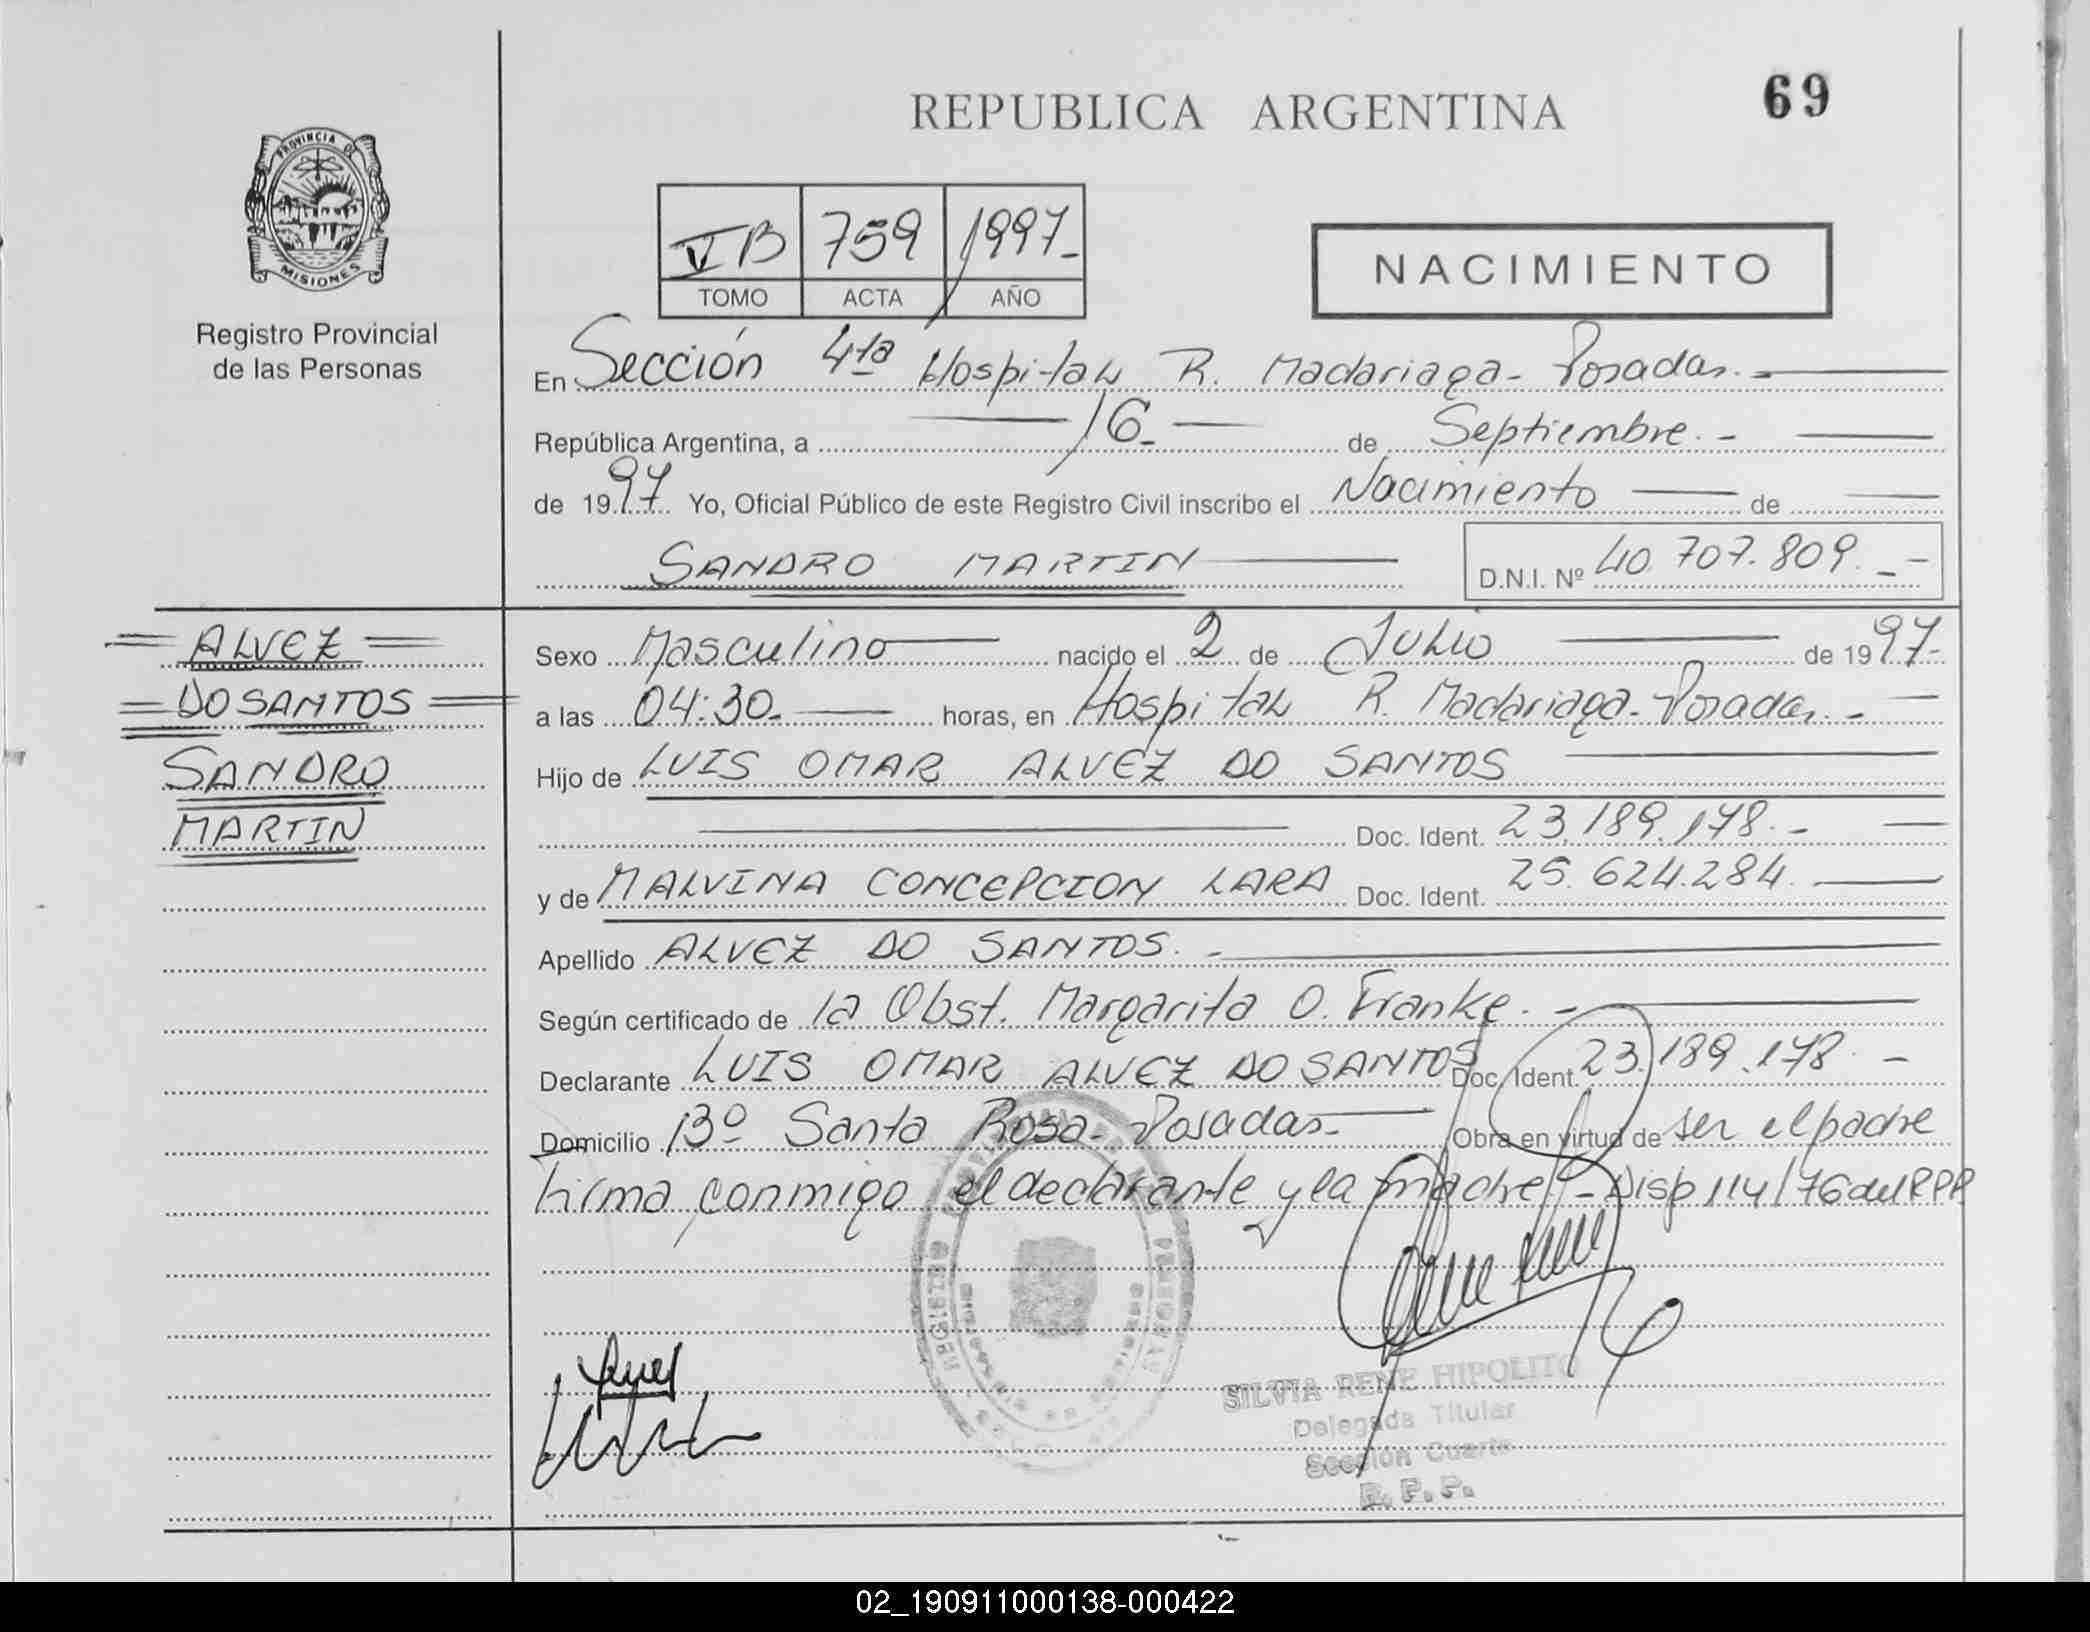 REPUBLICA ARGENTINA
69
PROVINCIA DE
MISIONES
Registro Provincial
de las Personas
VB 759 1997-
TOMO ACTA AÑO
NACIMIENTO
En Sección 4ta Hospital R. Madariaga- Posadas.-
República Argentina, a 16- de Septiembre.-
de 1997 Yo, Oficial Público de este Registro Civil inscribo el Nacimiento de
SANDRO MARTIN
D.N.I. Nº 40.707.809.--
ALVEZ
DO SANTOS
SANDRO
MARTIN
Sexo Masculino nacido el 2 de Julio de 1997-
a las 04:30.- horas, en Hospital R. Madariaga-Posadas.-
Hijo de LUIS OMAR ALVEZ DO SANTOS
Doc. Ident. 23.189.178.-
y de MALVINA CONCEPCION LARA Doc. Ident. 25.624.284.
Apellido ALVEZ DO SANTOS.-
Según certificado de la Obst. Margarita O. Franke.-
Declarante LUIS OMAR ALVEZ DO SANTOS Doc. Ident. 23.189.178.-
Domicilio Bº Santa Rosa- Posadas- Obra en virtud de ser el padre
Firma conmigo el declarante y la madre.-Disp 114/76 del RPP
REGISTRO PROVINCIAL DE LAS PERSONAS
SILVIA RENE HIPOLITO
Delegada Titular
Sección Cuarta
R. P. P.
02_190911000138-000422